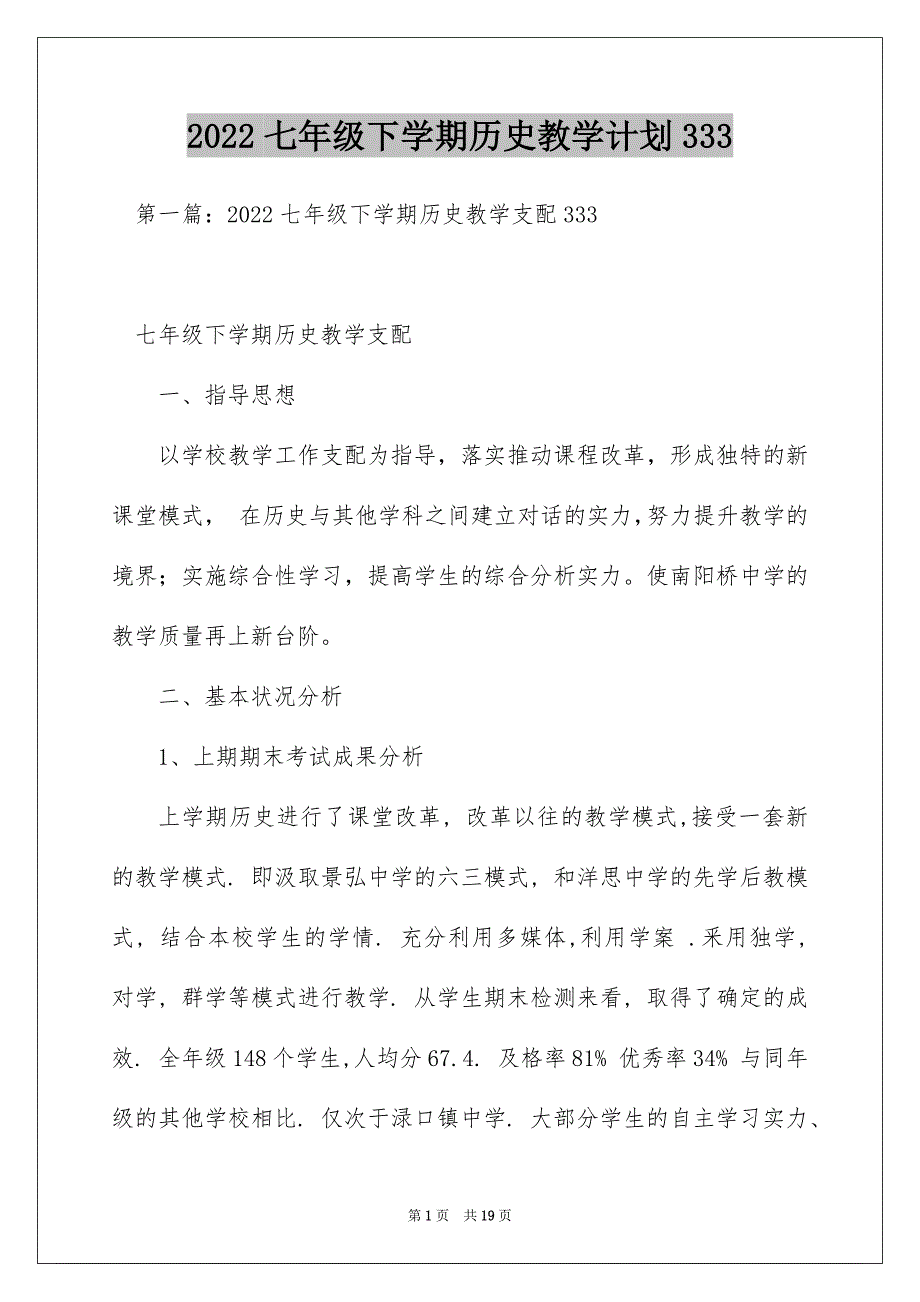 2022七年级下学期历史教学计划333
第一篇：2022七年级下学期历史教学支配333
七年级下学期历史教学支配
一、指导思想
以学校教学工作支配为指导，落实推动课程改革，形成独特的新
课堂模式， 在历史与其他学科之间建立对话的实力,努力提升教学的
境界；实施综合性学习，提高学生的综合分析实力。使南阳桥中学的
教学质量再上新台阶。
二、基本状况分析
1、上期期末考试成果分析
上学期历史进行了课堂改革, 改革以往的教学模式,接受一套新
的教学模式. 即汲取景弘中学的六三模式, 和洋思中学的先学后教模
式, 结合本校学生的学情. 充分利用多媒体,利用学案 .釆用独学,
对学, 群学等模式进行教学. 从学生期末检测来看, 取得了确定的成
效. 全年级148个学生,人均分67.4. 及格率81% 优秀率34% 与同年
级的其他学校相比. 仅次于渌口镇中学. 大部分学生的自主学习实力、
第1页 共19页